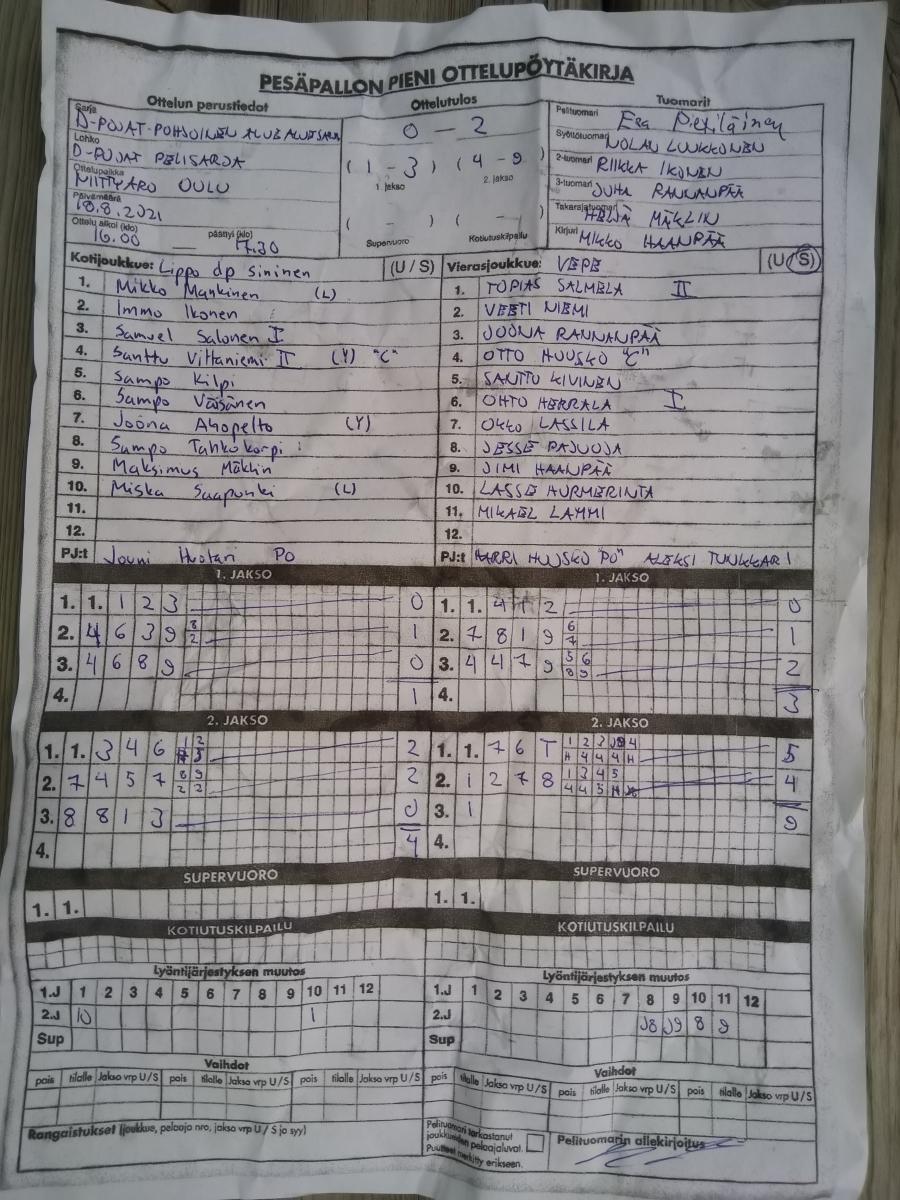 PESÄPALLON PIENI OTTELUPÖYTÄKIRJA
Ottelun perustiedot
Sarja D-POJAT-POHJOINEN
Lohko D-POJAT PELISARJA
Ottelupaikka NIITTYARO OULU
Päivämäärä 18.8.2021
Ottelu alkoi (klo) 16.00 — päättyi (klo) 17.30
Ottelutulos
0 - 2
(1 - 3) (4 - 9)
1. jakso 2. jakso
( - ) ( - )
Supervuoro Kotiutuskilpailu
Tuomarit
Pelituomari Esa Pietiläinen
Syöttötuomari NOLAN LUUKKONEN
2-tuomari RIIKKA IKONEN
3-tuomari JUHA RANNANPÄÄ
Takarajatuomari MÄKLIN
Kirjuri MIKKO HAANPÄÄ
Kotijoukkue: Lippo dp sininen (U / S)
1. Mikko Mankinen (L)
2. Immo Ikonen
3. Samuel Salonen I
4. Santtu Viitaniemi II (Y) "C"
5. Sampo Kilpi
6. Sampo Väisänen
7. Joona Ahopelto (Y)
8. Sampo Tahkokorpi
9. Maksimus Mäklin
10. Miska Saapunki (L)
11.
12.
PJ:t Jouni Huotari PO
Vierasjoukkue: VEPE (U / S)
1. TOPIAS SALMELA II
2. VEETI NIEMI
3. JOONA RANNANPÄÄ
4. OTTO HUUSKO "C"
5. SANTTU KIVINEN
6. OHTO HERRALA I
7. OKKO LASSILA
8. JESSE PAJUOJA
9. JIMI HAANPÄÄ
10. LASSE HURMERINTA
11. MIKAEL LAMMI
12.
PJ:t HARRI HUUSKO "PO" ALEKSI TUUKKARI
1. JAKSO
1. 1. 1 2 3 0
2. 4 6 3 9 3 2 1
3. 4 6 8 9 0
4. 1
1. JAKSO
1. 1. 4 1 2 0
2. 7 8 1 9 6 7 1
3. 4 4 7 9 5 6 8 9 2
4. 3
2. JAKSO
1. 1. 3 4 6 1 2 2
2. 7 4 5 7 8 9 2 2 2
3. 8 8 1 3 0
4. 4
2. JAKSO
1. 1. 7 6 T 1 2 3 J9 4 H 4 4 4 H 5
2. 1 2 7 8 1 3 4 5 4 4 5 4
3. 1 9
4.
SUPERVUORO
1. 1.
SUPERVUORO
1. 1.
KOTIUTUSKILPAILU
KOTIUTUSKILPAILU
Lyöntijärjestyksen muutos
1.J 1 2 3 4 5 6 7 8 9 10 11 12
2.J 10 1
Sup
Lyöntijärjestyksen muutos
1.J 1 2 3 4 5 6 7 8 9 10 11 12
2.J J8 J9 8 9
Sup
Vaihdot
pois tilalle Jakso vrp U/S pois tilalle Jakso vrp U/S pois tilalle Jakso vrp U/S
Vaihdot
pois tilalle Jakso vrp U/S pois tilalle Jakso vrp U/S pois tilalle Jakso vrp U/S
Rangaistukset (joukkue, pelaaja nro, jakso vrp U / S ja syy)
Pelituomari tarkastanut
joukkueiden pelaajaluvat.
Puutteet merkitty erikseen.
Pelituomarin allekirjoitus